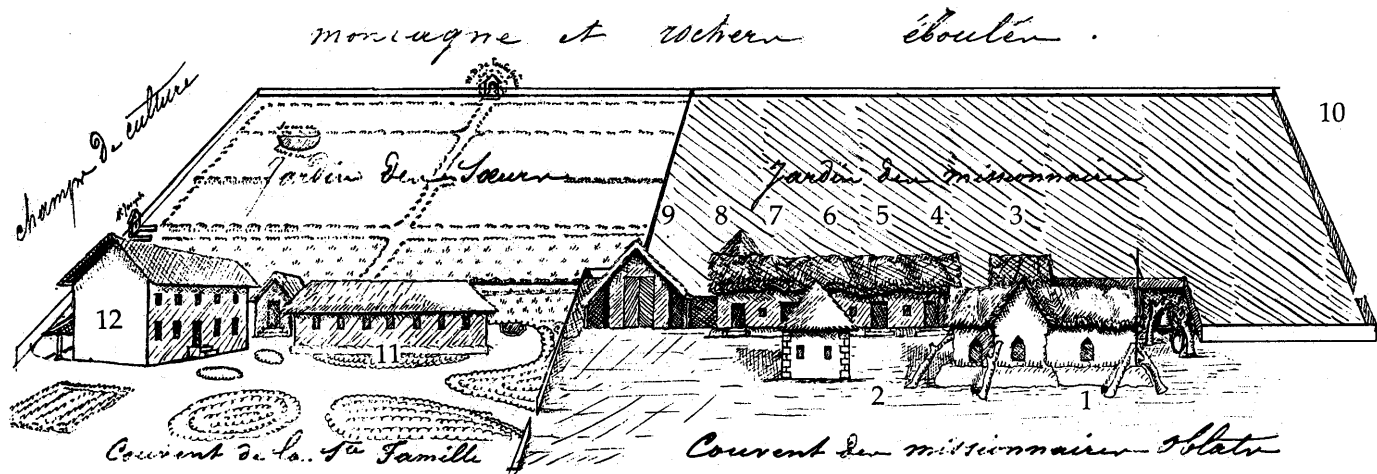 montagne et rochers éboulés .
champs de culture
N.D. de Lourdes
10
Source
Jardin des Sœurs
Jardin des missionnaires
St Joseph
9 8 7 6 5 4 3
12
11
2
1
Couvent de la Ste Famille
Couvent des missionnaires Oblats